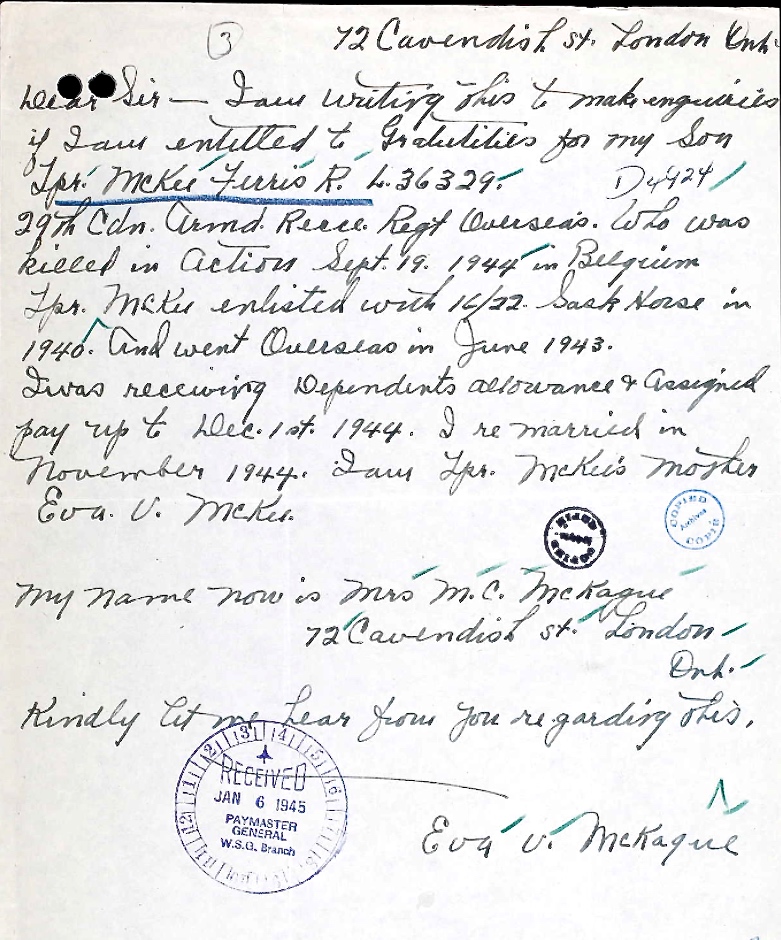 3
72 Cavendish st. London Ont.
Dear Sir — I am writing this to make enquiries
if I am entitled to Gratutities for my Son
Tpr. McKee Ferris R. L.36329. D4924
29th Cdn. Armd. Recce. Regt Overseas. Who was
killed in Action Sept. 19. 1944 in Belgium
Tpr. McKee enlisted with 16/22. Sask Horse in
1940. And went Overseas in June 1943.
I was receiving Dependents allowance & Assigned
pay up to Dec. 1st. 1944. I re married in
November 1944. I am Tpr. McKee's Mother
Eva. V. McKee.
COPIED
COPIED
Archives
My name now is Mrs M.C. McKague
72 Cavendish st. London
Ont.
Kindly let me hear from you regarding this.
RECEIVED
JAN 6 1945
PAYMASTER
GENERAL
W.S.G. Branch
Eva V. McKague